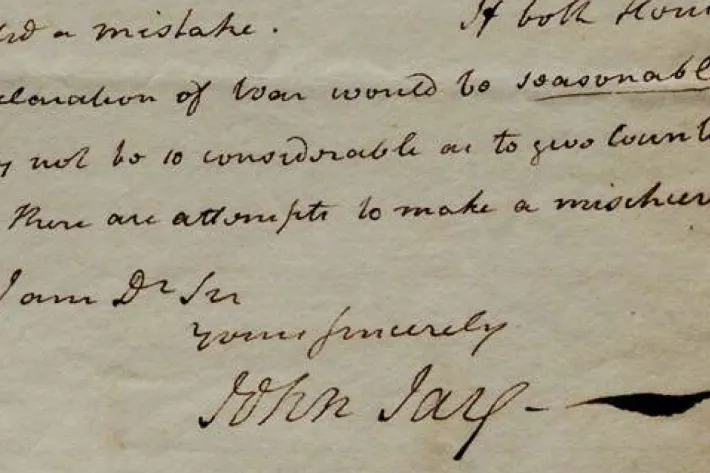 a mistake. If both Hou
claration of War would be seasonabl
not be so considerable as to give Count
There are attempts to make a mischiev
I am Dr Sir
yours sincerely
John Jay